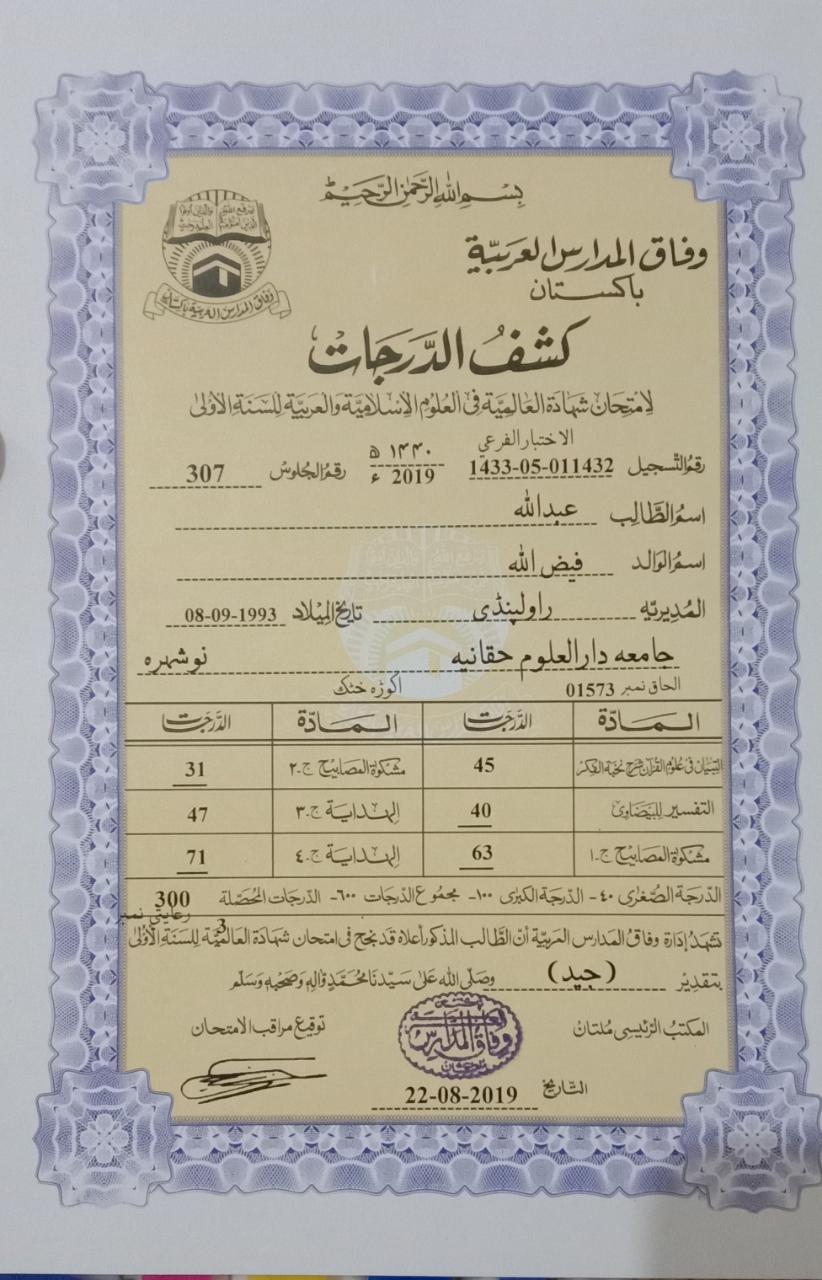 بسم الله الرحمن الرحيم
وفاق المدارس العربية
باكستان
وفاق المدارس العربية باكستان
كشف الدرجات
لامتحان شهادة العالمية في العلوم الإسلامية والعربية للسنة الأولى
الاختبار الفرعي
رقم التسجيل 1433-05-011432 ١٤٤٠ ھ 2019 ء رقم الجلوس 307
اسم الطالب عبدالله
اسم الوالد فيض الله
المديريه راولپنڈی تاريخ الميلاد 08-09-1993
جامعه دارالعلوم حقانيه نوشهره
الحاق نمبر 01573 اکوڑہ خٹک
المادّة الدّرجات المادّة الدّرجات
التبيان في علوم القرآن شرح نخبة الفكر 45 مشكوة المصابيح ج-٢ 31
التفسير للبيضاوى 40 الهداية ج-٣ 47
مشكوة المصابيح ج-١ 63 الهداية ج-٤ 71
الدرجة الصغرى ٤٠- الدرجة الكبرى ١٠٠- مجموع الدرجات ٦٠٠- الدرجات المحصلة 300
رعایتی نمبر 3
تشهد إدارة وفاق المدارس العربية أنّ الطالب المذكور أعلاه قد نجح في امتحان شهادة العالمية للسنة الأولى
بتقدير (جيد) وصلّى الله على سيّدنا محمّد وّاله وصحبه وسلم
المكتب الرئيسى ملتان توقيع مراقب الامتحان
وفاق المدارس
التاريخ 22-08-2019